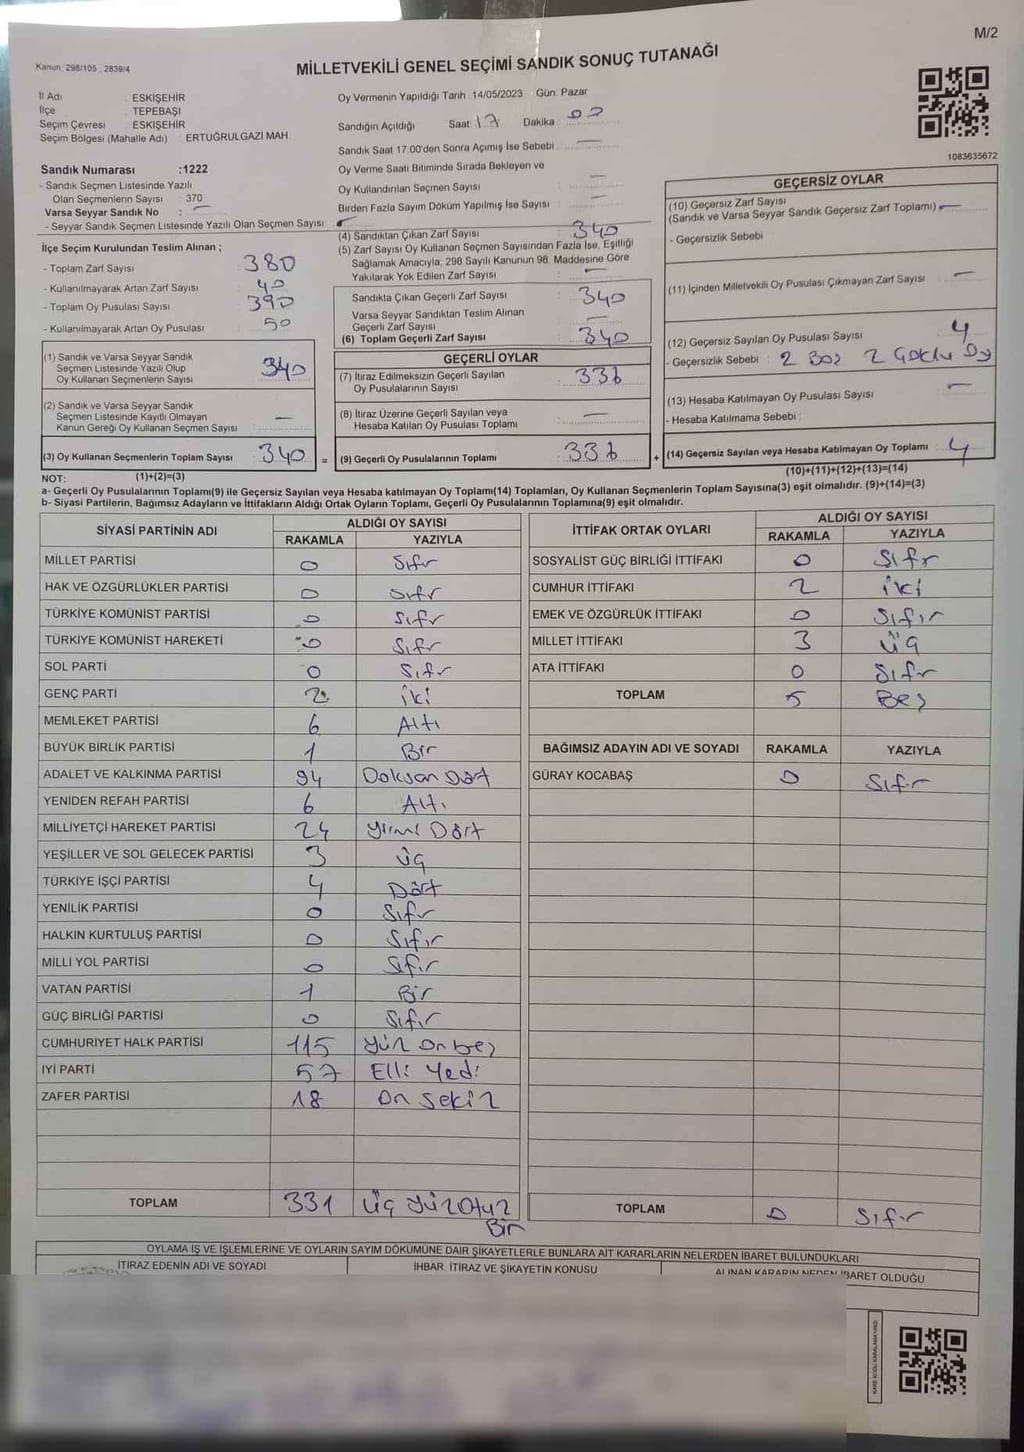 M/2
Kanun: 298/105 , 2839/4
MİLLETVEKİLİ GENEL SEÇİMİ SANDIK SONUÇ TUTANAĞI
İl Adı : ESKİŞEHİR
İlçe : TEPEBAŞI
Seçim Çevresi : ESKİŞEHİR
Seçim Bölgesi (Mahalle Adı) : ERTUĞRULGAZİ MAH.
Sandık Numarası :1222
- Sandık Seçmen Listesinde Yazılı
Olan Seçmenlerin Sayısı 370
Varsa Seyyar Sandık No : —
- Seyyar Sandık Seçmen Listesinde Yazılı Olan Seçmen Sayısı : —
İlçe Seçim Kurulundan Teslim Alınan ;
- Toplam Zarf Sayısı 380
- Kullanılmayarak Artan Zarf Sayısı : 40
- Toplam Oy Pusulası Sayısı 390
- Kullanılmayarak Artan Oy Pusulası : 50
(1) Sandık ve Varsa Seyyar Sandık
Seçmen Listesinde Yazılı Olup
Oy Kullanan Seçmenlerin Sayısı : 340
(2) Sandık ve Varsa Seyyar Sandık
Seçmen Listesinde Kayıtlı Olmayan
Kanun Gereği Oy Kullanan Seçmen Sayısı : —
(3) Oy Kullanan Seçmenlerin Toplam Sayısı : 340 =
(1)+(2)=(3)
Oy Vermenin Yapıldığı Tarih :14/05/2023 Gün: Pazar
Sandığın Açıldığı Saat: 17 Dakika : 00
Sandık Saat 17:00'den Sonra Açımış İse Sebebi : —
Oy Verme Saati Bitiminde Sırada Bekleyen ve
Oy Kullandırılan Seçmen Sayısı : —
Birden Fazla Sayım Döküm Yapılmış İse Sayısı : —
(4) Sandıktan Çıkan Zarf Sayısı : 340
(5) Zarf Sayısı Oy Kullanan Seçmen Sayısından Fazla İse, Eşitliği
Sağlamak Amacıyla, 298 Sayılı Kanunun 98. Maddesine Göre
Yakılarak Yok Edilen Zarf Sayısı : —
Sandıkta Çıkan Geçerli Zarf Sayısı : 340
Varsa Seyyar Sandıktan Teslim Alınan
Geçerli Zarf Sayısı : —
(6) Toplam Geçerli Zarf Sayısı : 340
GEÇERLİ OYLAR
(7) İtiraz Edilmeksizin Geçerli Sayılan
Oy Pusulalarının Sayısı : 336
(8) İtiraz Üzerine Geçerli Sayılan veya
Hesaba Katılan Oy Pusulası Toplamı : —
(9) Geçerli Oy Pusulalarının Toplamı : 336 +
1083635672
GEÇERSİZ OYLAR
(10) Geçersiz Zarf Sayısı
(Sandık ve Varsa Seyyar Sandık Geçersiz Zarf Toplamı) : —
- Geçersizlik Sebebi :
(11) İçinden Milletvekili Oy Pusulası Çıkmayan Zarf Sayısı : —
(12) Geçersiz Sayılan Oy Pusulası Sayısı : 4
- Geçersizlik Sebebi : 2 Boş 2 Çoklu Oy
(13) Hesaba Katılmayan Oy Pusulası Sayısı : —
- Hesaba Katılmama Sebebi :
(14) Geçersiz Sayılan veya Hesaba Katılmayan Oy Toplamı : 4
(10)+(11)+(12)+(13)=(14)
NOT:
a- Geçerli Oy Pusulalarının Toplamı(9) ile Geçersiz Sayılan veya Hesaba katılmayan Oy Toplamı(14) Toplamları, Oy Kullanan Seçmenlerin Toplam Sayısına(3) eşit olmalıdır. (9)+(14)=(3)
b- Siyasi Partilerin, Bağımsız Adayların ve İttifakların Aldığı Ortak Oyların Toplamı, Geçerli Oy Pusulalarının Toplamına(9) eşit olmalıdır.
SİYASİ PARTİNİN ADI ALDIĞI OY SAYISI
RAKAMLA YAZIYLA
MİLLET PARTİSİ 0 Sıfır
HAK VE ÖZGÜRLÜKLER PARTİSİ 0 Sıfır
TÜRKİYE KOMÜNİST PARTİSİ 0 Sıfır
TÜRKİYE KOMÜNİST HAREKETİ 0 Sıfır
SOL PARTİ 0 Sıfır
GENÇ PARTİ 2 iki
MEMLEKET PARTİSİ 6 Altı
BÜYÜK BİRLİK PARTİSİ 1 Bir
ADALET VE KALKINMA PARTİSİ 94 Doksan Dört
YENİDEN REFAH PARTİSİ 6 Altı
MİLLİYETÇİ HAREKET PARTİSİ 24 Yirmi Dört
YEŞİLLER VE SOL GELECEK PARTİSİ 3 üç
TÜRKİYE İŞÇİ PARTİSİ 4 Dört
YENİLİK PARTİSİ 0 Sıfır
HALKIN KURTULUŞ PARTİSİ 0 Sıfır
MİLLİ YOL PARTİSİ 0 Sıfır
VATAN PARTİSİ 1 Bir
GÜÇ BİRLİĞİ PARTİSİ 0 Sıfır
CUMHURİYET HALK PARTİSİ 115 Yüz On beş
İYİ PARTİ 57 Elli Yedi
ZAFER PARTİSİ 18 On sekiz
TOPLAM 331 Üç Yüz Otuz
Bir
İTTİFAK ORTAK OYLARI ALDIĞI OY SAYISI
RAKAMLA YAZIYLA
SOSYALİST GÜÇ BİRLİĞİ İTTİFAKI 0 Sıfır
CUMHUR İTTİFAKI 2 iki
EMEK VE ÖZGÜRLÜK İTTİFAKI 0 Sıfır
MİLLET İTTİFAKI 3 üç
ATA İTTİFAKI 0 Sıfır
TOPLAM 5 Beş
BAĞIMSIZ ADAYIN ADI VE SOYADI RAKAMLA YAZIYLA
GÜRAY KOCABAŞ 0 Sıfır
TOPLAM 0 Sıfır
OYLAMA İŞ VE İŞLEMLERİNE VE OYLARIN SAYIM DÖKÜMÜNE DAİR ŞİKAYETLERLE BUNLARA AİT KARARLARIN NELERDEN İBARET BULUNDUKLARI
İTİRAZ EDENİN ADI VE SOYADI İHBAR, İTİRAZ VE ŞİKAYETİN KONUSU ALINAN KARARIN NEDEN İBARET OLDUĞU